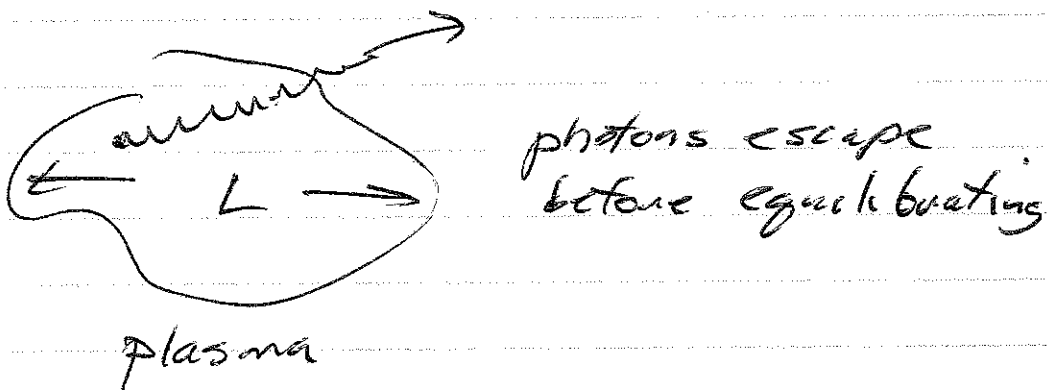 photons escape
before equilibrating
L
plasma